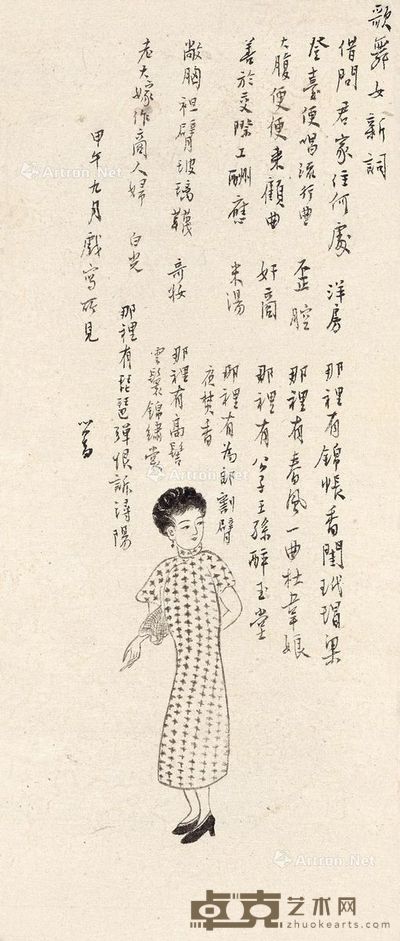 歌舞女新詞
借問君家住何處 洋房 那裡有錦帳香閨玳瑁梁
登臺便唱流行曲 歪腔 那裡有春風一曲杜韋娘
大腹便便來顧曲 奸商 那裡有公子王孫醉玉堂
善於交際工酬應 米湯 那裡有為郎割臂
夜焚香
敞胸袒臂玻璃襪 奇妝 那裡有高髻
雲鬟錦繡裳
老大嫁作商人婦 白光 那裡有琵琶彈恨訴潯陽
甲午九月戲寫所見
心畬
Artron.Net
Artron.Net
Artron.Net
Artron.Net
卓克艺术网
zhuokearts.com